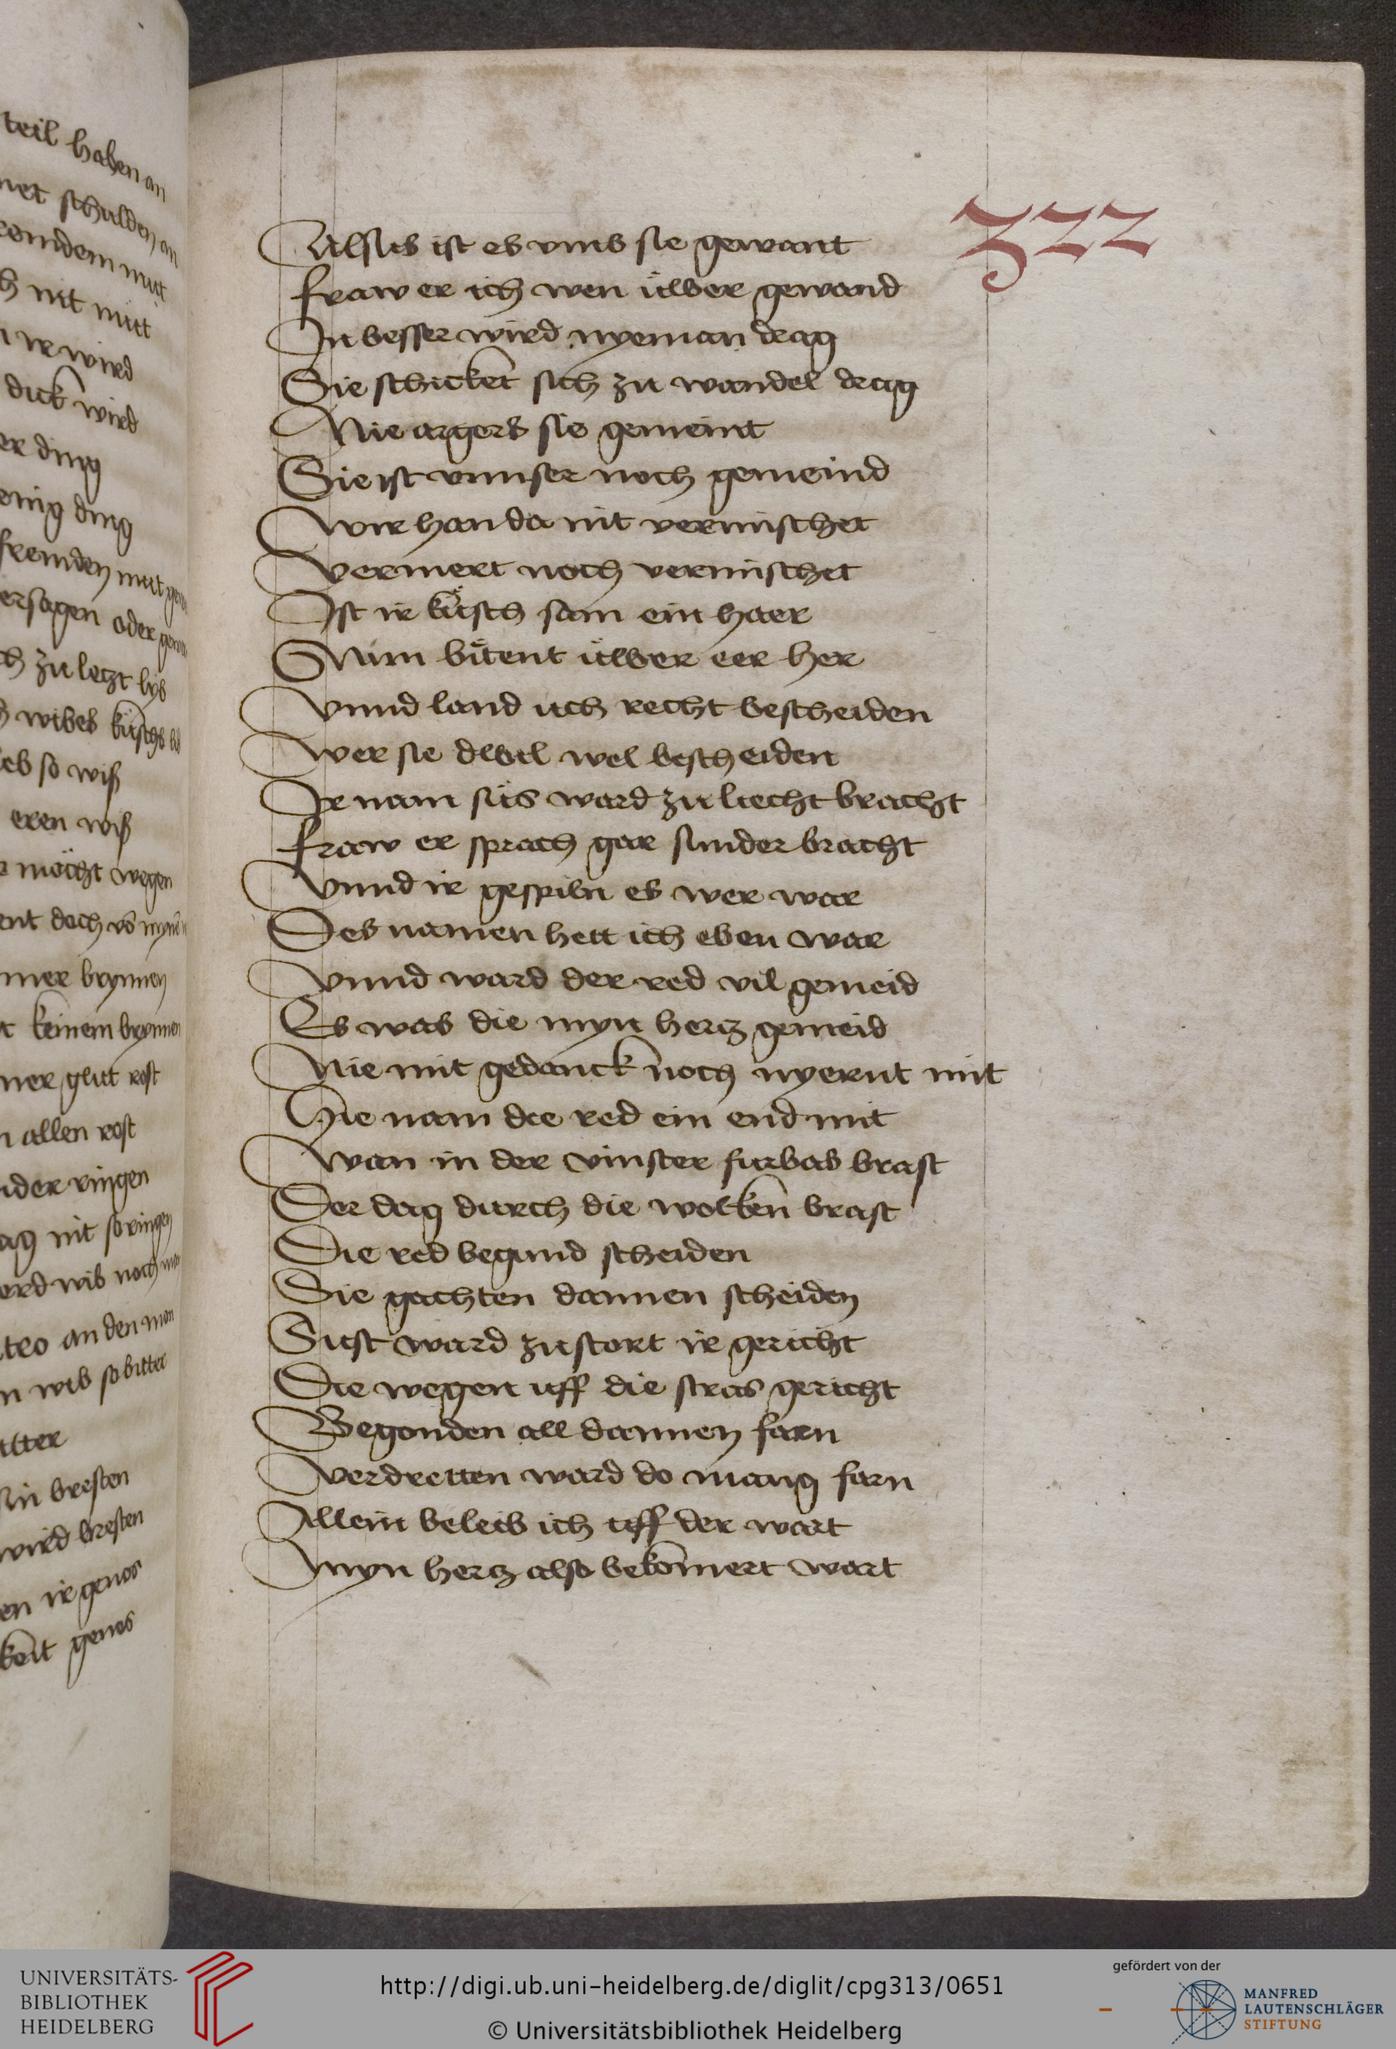 teil haben an
net schulden an
remdem mut
h nit mitt
n ir wird
dick wird
er ding
enig ding
fremden mut
ersagen oder
ch zu letzt lyb
wibes küsch
eb so wiß
eren wiß
möcht wegen
ent doch
mer brynnen
keinem brynnen
ner glut rost
n allen rost
nder ringen
ag nit so ringen
erd wib noch
teo an den man
n wib so bitter
itter
in bresten
wird bresten
en ir genos
keit genos
322
Alsus ist es vmb sie gewant
fraw er ich wen üwer gewand
In besser wird nyeman drag
Sie schicket sich zu wandel drag
Nie argers sie gemeint
Sie ist vnnser noch gemeind
Wir han da nit vermischet
Vermert noch vermischet
Ist ir küsch sam ein haer
Nům bütent üwer eer her
Vnnd land üch recht bescheiden
Wer sie dwil wel bescheiden
Ir nam süs ward zu liecht bracht
fraw er sprach gar sunder bracht
Vnnd ir gespiln es wer war
Des namen hett ich eben war
Vnnd ward der red vil gemeid
Es was die myn hertz gemeid
Nie mit gedanck noch nyernt mit
Hie nam die red ein end mit
Wan in der vinster furbas brast
Der dag durch die wolken brast
Die red begund scheiden
Sie gachten dannen scheiden
Sust ward zustort ir gericht
Die wegen uff die stras gericht
Begonden all dannen farn
Verdretten ward do mang farn
Allein beleib ich uff der wart
Myn hertz also bekomert wart
UNIVERSITÄTS-
BIBLIOTHEK
HEIDELBERG
http://digi.ub.uni-heidelberg.de/diglit/cpg313/0651
© Universitätsbibliothek Heidelberg
gefördert von der
MANFRED
LAUTENSCHLÄGER
STIFTUNG